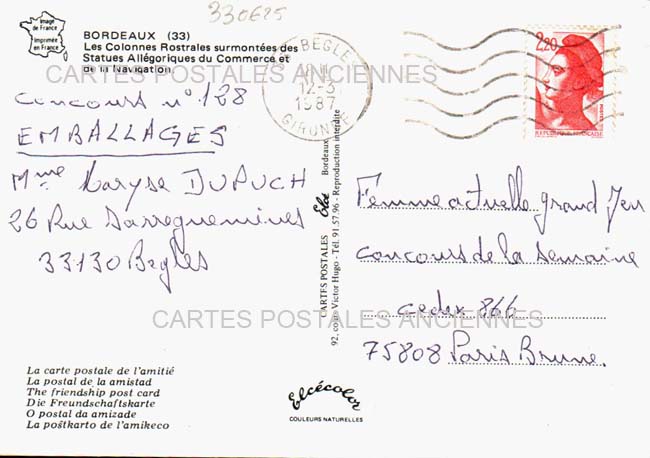 330625
Image
de France
Imprimée
en France
BORDEAUX (33)
Les Colonnes Rostrales surmontées des
Statues Allégoriques du Commerce et
de la Navigation
CARTES POSTALES ANCIENNES
BEGLE
12-3
1987
GIRONDE
2,20
REPUBLIQUE FRANÇAISE
Concours n° 128
EMBALLAGES
Mme Maryse DUPUCH
26 Rue Sarreguemines
33130 Begles
CARTES POSTALES Elcé Bordeaux
92, cours Victor Hugo - Tél. 91.57.96 - Reproduction interdite
Femme actuelle grand Jeu
concours de la semaine
cedex 866
75808 Paris Brune.
CARTES POSTALES ANCIENNES
La carte postale de l'amitié
La postal de la amistad
The friendship post card
Die Freundschaftskarte
O postal da amizade
La poŝtkarto de l'amikeco
Elcécolor
COULEURS NATURELLES